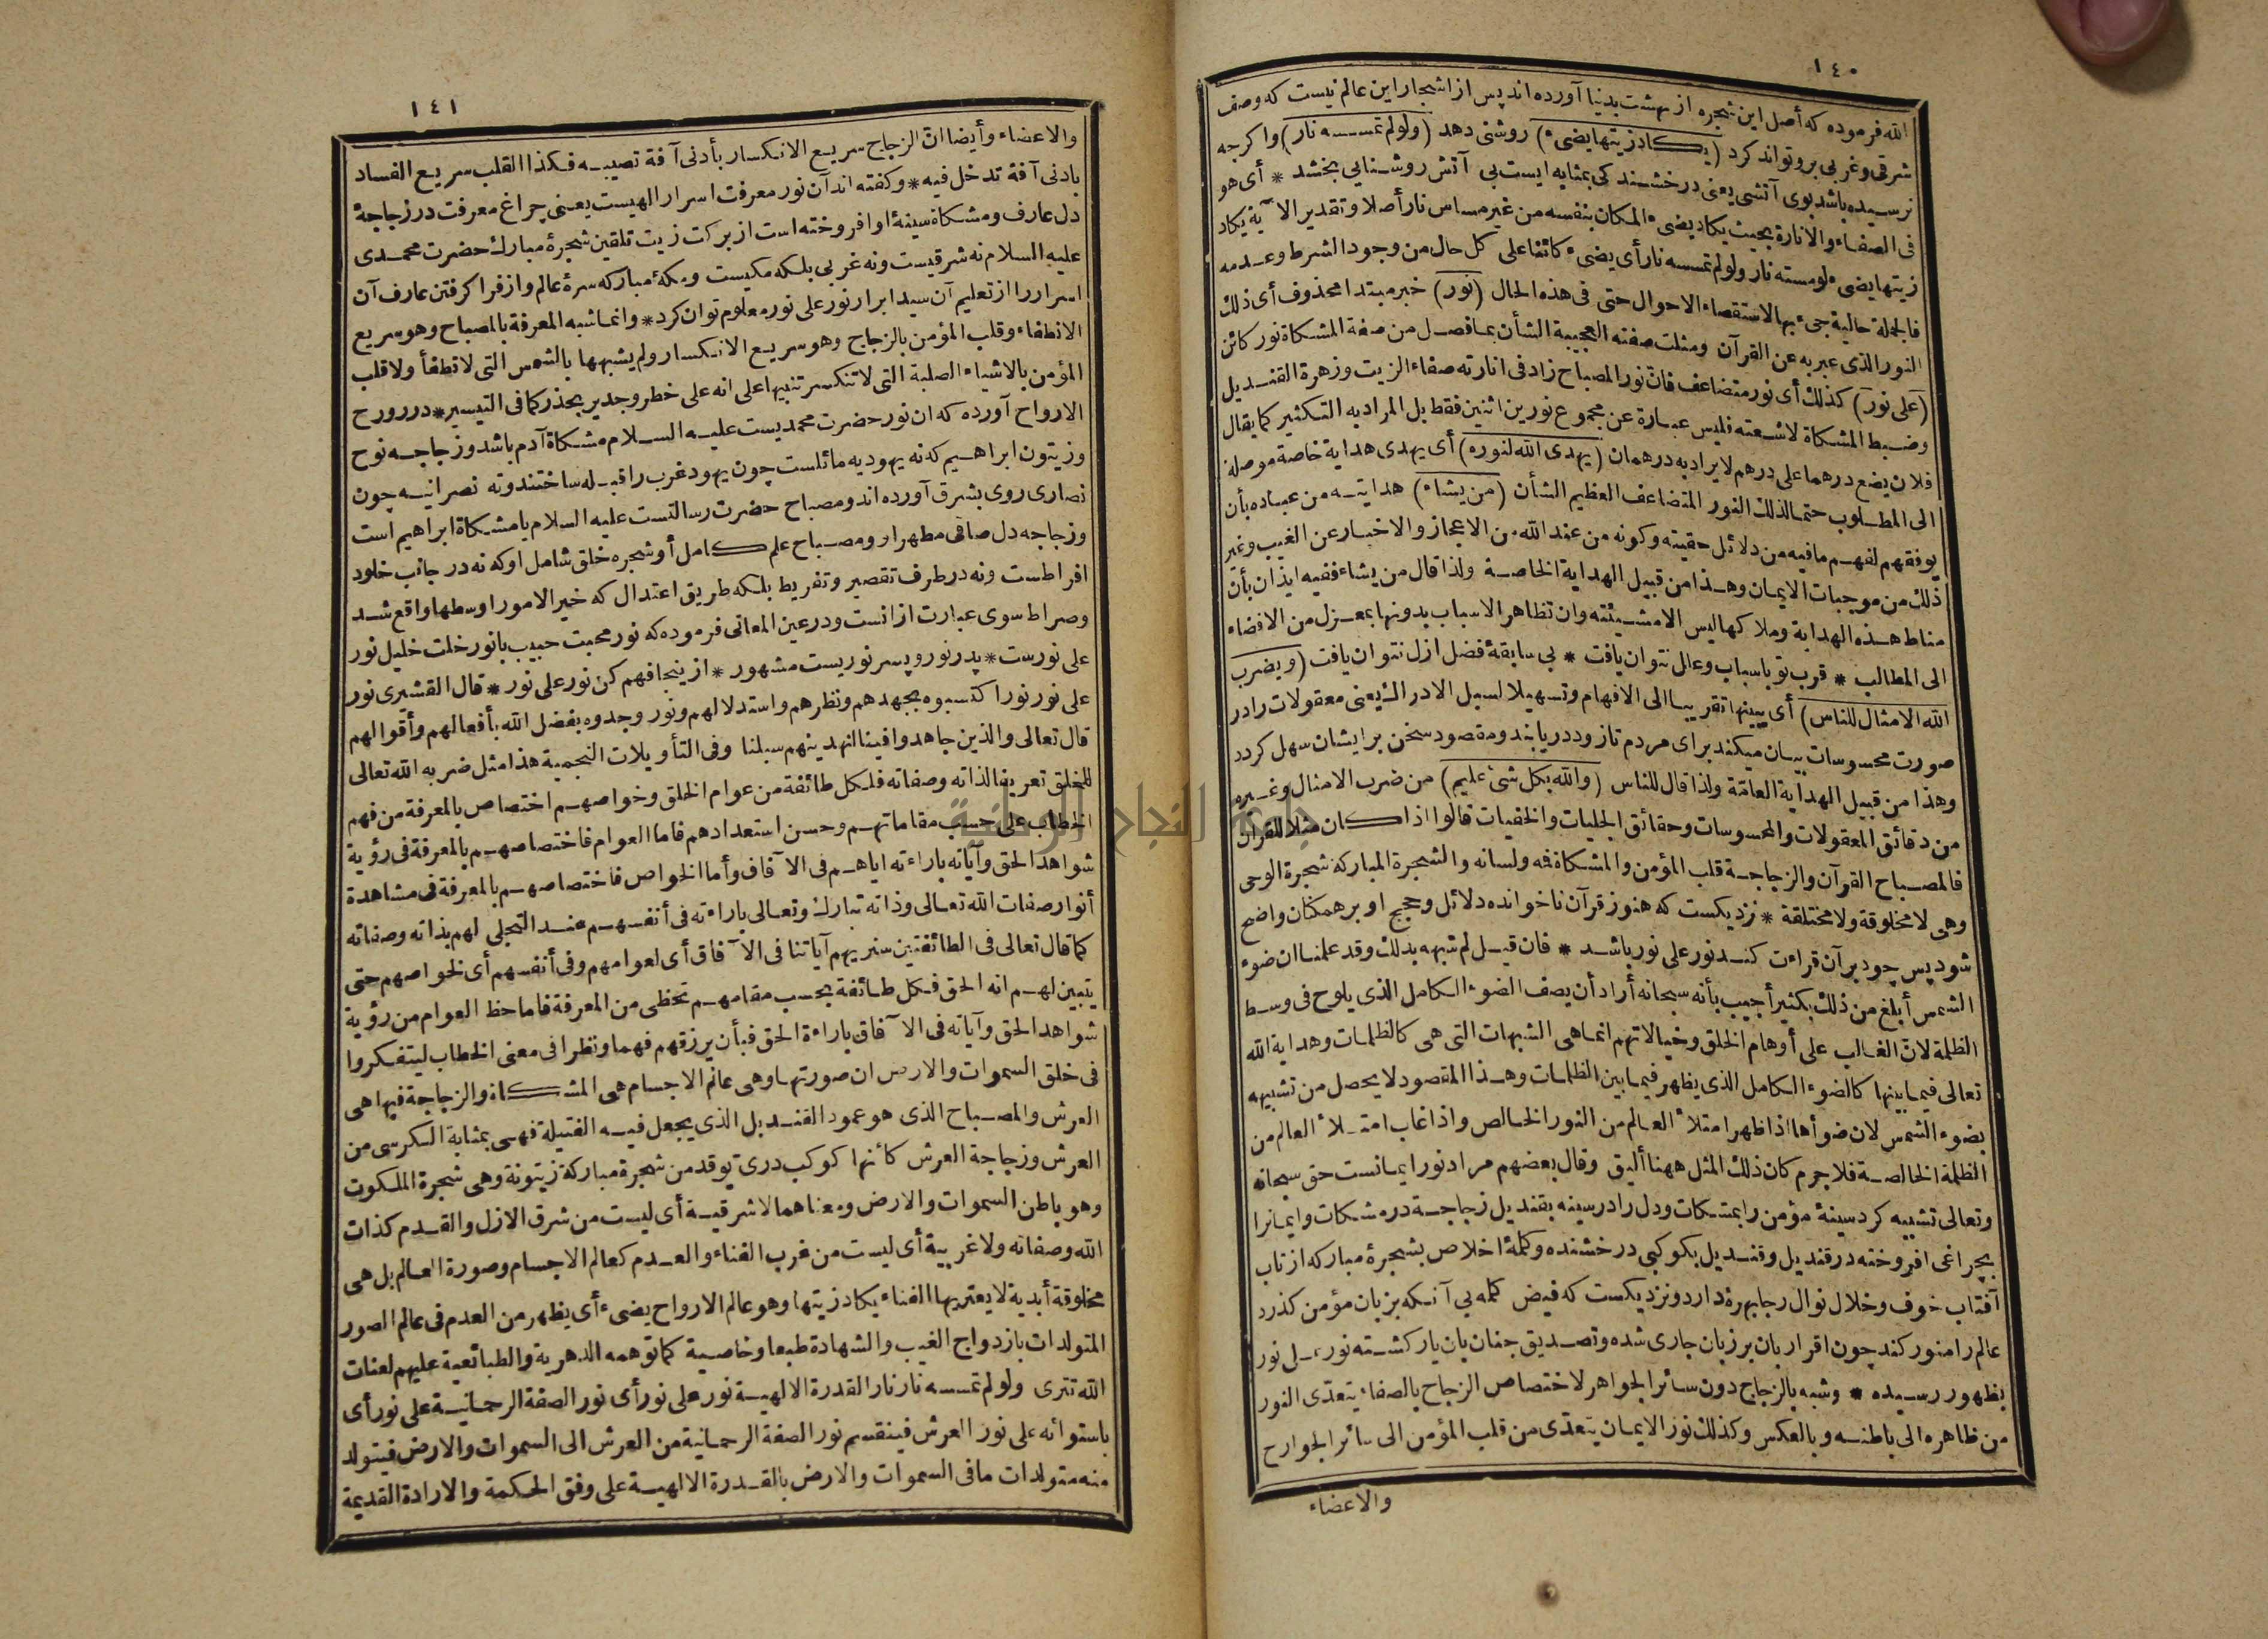 ١٤٠
الله فرموده كه أصل اين شجره از بهشت بدنيا آورده اند پس از اشجار اين عالم نيست كه وصف
شرقى وغربى بروتواند كرد (يكاد زيتها يضىء) روشنى دهد (ولو لم تمسسه نار) واكرچه
نرسيده باشد بوى آتشى يعنى درخشند كى بمثابه ايست بى آتش روشنايى بخشد * أى هو
فى الصفاء والانارة بحيث يكاد يضىء المكان بنفسه من غير مساس نار أصلا وتقدير الآية يكاد
زيتها يضىء لو مسته نار ولو لم تمسسه نار أى يضىء كائنا على كل حال من وجود الشرط وعدمه
فالجملة حالية جىء بها لاستقصاء الاحوال حتى فى هذه الحال (نور) خبر مبتدا محذوف أى ذلك
النور الذى عبر به عن القرآن ومثلت صفته العجيبة الشأن بما فصل من صفة المشكاة نور كائن
(على نور) كذلك أى نور متضاعف فانّ نور المصباح زاد فى انارته صفاء الزيت وزهرة القنديل
وضبط المشكاة لاشعته فليس عبارة عن مجموع نورين اثنين فقط بل المراد به التكثير كما يقال
فلان يضع درهما على درهم لا يراد به درهمان (يهدى الله لنوره) أى يهدى هداية خاصة موصلة
الى المطلوب حتما لذلك النور المتضاعف العظيم الشأن (من يشاء) هدايته من عباده بأن
يوفقهم لفهم ما فيه من دلائل حقيته وكونه من عند الله من الاعجاز والاخبار عن الغيب وغير
ذلك من موجبات الايمان وهذا من قبيل الهداية الخاصة ولذا قال من يشاء ففيه ايذان بأنّ
مناط هذه الهداية وملاكها ليس الا مشيئته وان تظاهر الاسباب بدونها بمعزل من الافضاء
الى المطالب * قرب تو باسباب وعلل نتوان يافت * بى سابقهٔ فضل ازل نتوان يافت (ويضرب
الله الامثال للناس) أى يبينها تقريبا الى الافهام وتسهيلا لسبل الادراك يعنى معقولات رادر
صورت محسوسات بيان ميكند براى مردم تا زود دريابند ومقصود سخن برايشان سهل كردد
وهذا من قبيل الهداية العامّة ولذا قال للناس (والله بكل شئ عليم) من ضرب الامثال وغيره
من دقائق المعقولات والمحسوسات وحقائق الجليات والخفيات قالوا اذا كان مثلا للقرآن
فالمصباح القرآن والزجاجة قلب المؤمن والمشكاة فمه ولسانه والشجرة المباركة شجرة الوحى
وهى لا مخلوقة ولا مختلقة * نزديكست كه هنوز قرآن ناخوانده دلائل وحجج او بر همكنان واضح
شود پس چو دبر آن قراءت كنند نور على نور باشد * فان قيل لم شبهه بذلك وقد علمنا ان ضوء
الشمس أبلغ من ذلك بكثير أجيب بأنه سبحانه أراد أن يصف الضوء الكامل الذى يلوح فى وسط
الظلمة لانّ الغالب على أوهام الخلق وخيالاتهم انما هى الشبهات التى هى كالظلمات وهداية الله
تعالى فيما بينها كالضوء الكامل الذى يظهر فيما بين الظلمات وهذا المقصود لا يحصل من تشبيهه
بضوء الشمس لان ضوأها اذا ظهر امتلأ العالم من النور الخالص واذا غاب امتلأ العالم من
الظلمة الخالصة فلا جرم كان ذلك المثل ههنا أليق وقال بعضهم مراد نور ايمانست حق سبحانه
وتعالى تشبيه كرد سينهٔ مؤمن را بمشكات ودل را در سينه بقنديل زجاجه در مشكات وايمانرا
بچراغى افروخته در قنديل وقنديل بكوكبى درخشنده وكلمهٔ اخلاص بشجرهٔ مباركه از تاب
آفتاب خوف وخلال نوال رجا بهرۀ دارد ونزديكست كه فيض كلمه بى آنكه بزبان مؤمن كذرد
عالم را منور كند چون اقرار بان بر زبان جارى شده وتصديق جنان بان يار كشته نور على نور
بظهور رسيده * وشبه بالزجاج دون سائر الجواهر لاختصاص الزجاج بالصفاء يتعدّى النور
من ظاهره الى باطنه وبالعكس وكذلك نور الايمان يتعدّى من قلب المؤمن الى سائر الجوارح
والاعضاء
١٤١
والاعضاء وأيضا انّ الزجاج سريع الانكسار بأدنى آفة تصيبه فكذا القلب سريع الفساد
بادنى آفة تدخل فيه * وكفته اند آن نور معرفت اسرار الهيست يعنى چراغ معرفت در زجاجهٔ
دل عارف ومشكاة سينهٔ او افروخته است از بركت زيت تلقين شجرهٔ مبارك حضرت محمدى
عليه السلام نه شرقيست ونه غربى بلكه مكيست ومكهٔ مباركه سرهٔ عالم واز فرا كرفتن عارف آن
اسرار را از تعليم آن سيد ابرار نور على نور معلوم توان كرد * وانما شبه المعرفة بالمصباح وهو سريع
الانطفاء وقلب المؤمن بالزجاج وهو سريع الانكسار ولم يشبهها بالشمس التى لا تطفأ ولا قلب
المؤمن بالاشياء الصلبة التى لا تنكسر تنبيها على انه على خطر وجدير بحذر كما فى التيسير * در روح
الارواح آورده كه ان نور حضرت محمديست عليه السلام مشكاة آدم باشد وزجاجه نوح
وزيتون ابراهيم كه نه يهوديه مائلست چون يهود غرب را قبله ساختند ونه نصرانيه چون
نصارى روى بشرق آورده اند ومصباح حضرت رسالتست عليه السلام يا مشكاة ابراهيم است
وزجاجه دل صافى مطهر او ومصباح علم كامل أو شجره خلق شامل او كه نه در جانب خلود
افراطست ونه در طرف تقصير وتفريط بلكه طريق اعتدال كه خير الامور اوسطها واقع شد
وصراط سوى عبارت از انست ودر عين المعانى فرموده كه نور محبت حبيب با نور خلت خليل نور
على نورست * پدر نور وپسر نوريست مشهور * از ينجا فهم كن نور على نور * قال القشيرى نور
على نور نورا كتسبوه بجهدهم ونظرهم واستدلالهم ونور وجدوه بفضل الله بأفعالهم وأقوالهم
قال تعالى والذين جاهدوا فينا لنهدينهم سبلنا وفى التأويلات النجمية هذا مثل ضربه الله تعالى
للخلق تعريفا لذاته وصفاته فلكل طائفة من عوام الخلق وخواصهم اختصاص بالمعرفة من فهم
الخطاب على حسب مقاماتهم وحسن استعدادهم فاما العوام فاختصاصهم بالمعرفة فى رؤية
شواهد الحق وآياته باراءته اياهم فى الآفاق وأما الخواص فاختصاصهم بالمعرفة فى مشاهدة
أنوار صفات الله تعالى وذاته تبارك وتعالى باراءته فى أنفسهم عند التجلى لهم بذاته وصفاته
كما قال تعالى فى الطائفتين سنريهم آياتنا فى الآفاق أى لعوامهم وفى أنفسهم أى لخواصهم حتى
يتبين لهم انه الحق فكل طائفة بحسب مقامهم تحظى من المعرفة فاما حظ العوام من رؤية
شواهد الحق وآياته فى الآفاق باراءة الحق فبأن يرزقهم فهما ونظرا فى معنى الخطاب ليتفكروا
فى خلق السموات والارض ان صورتها وهى عالم الاجسام هى المشكاة والزجاجة فيها هى
العرش والمصباح الذى هو عمود القنديل الذى يجعل فيه الفتيلة فهى بمثابة الكرسى من
العرش وزجاجة العرش كأنها كوكب درىّ يوقد من شجرة مباركة زيتونة وهى شجرة الملكوت
وهو باطن السموات والارض ومعناهما لا شرقية أى ليست من شرق الازل والقدم كذات
الله وصفاته ولا غربية أى ليست من غرب الفناء والعدم كعالم الاجسام وصورة العالم بل هى
مخلوقة أبدية لا يعتريها الفناء يكاد زيتها وهو عالم الارواح يضىء أى يظهر من العدم فى عالم الصور
المتولدات بازدواج الغيب والشهادة طبعا وخاصية كما توهمه الدهرية والطبائعية عليهم لعنات
الله تترى ولو لم تمسسه نار نار القدرة الالهية نور على نور أى نور الصفة الرحمانية على نور أى
باستوائه على نور العرش فينقسم نور الصفة الرحمانية من العرش الى السموات والارض فيتولد
منه متولدات ما فى السموات والارض بالقدرة الالهية على وفق الحكمة والارادة القديمة